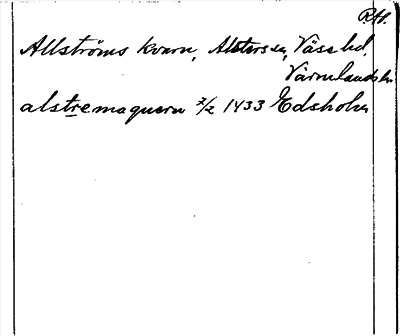 RH.
Allströms kvarn, Alsters sn, Väse hd,
Värmlands län
alstremaquern 7/2 1433 Edsholm